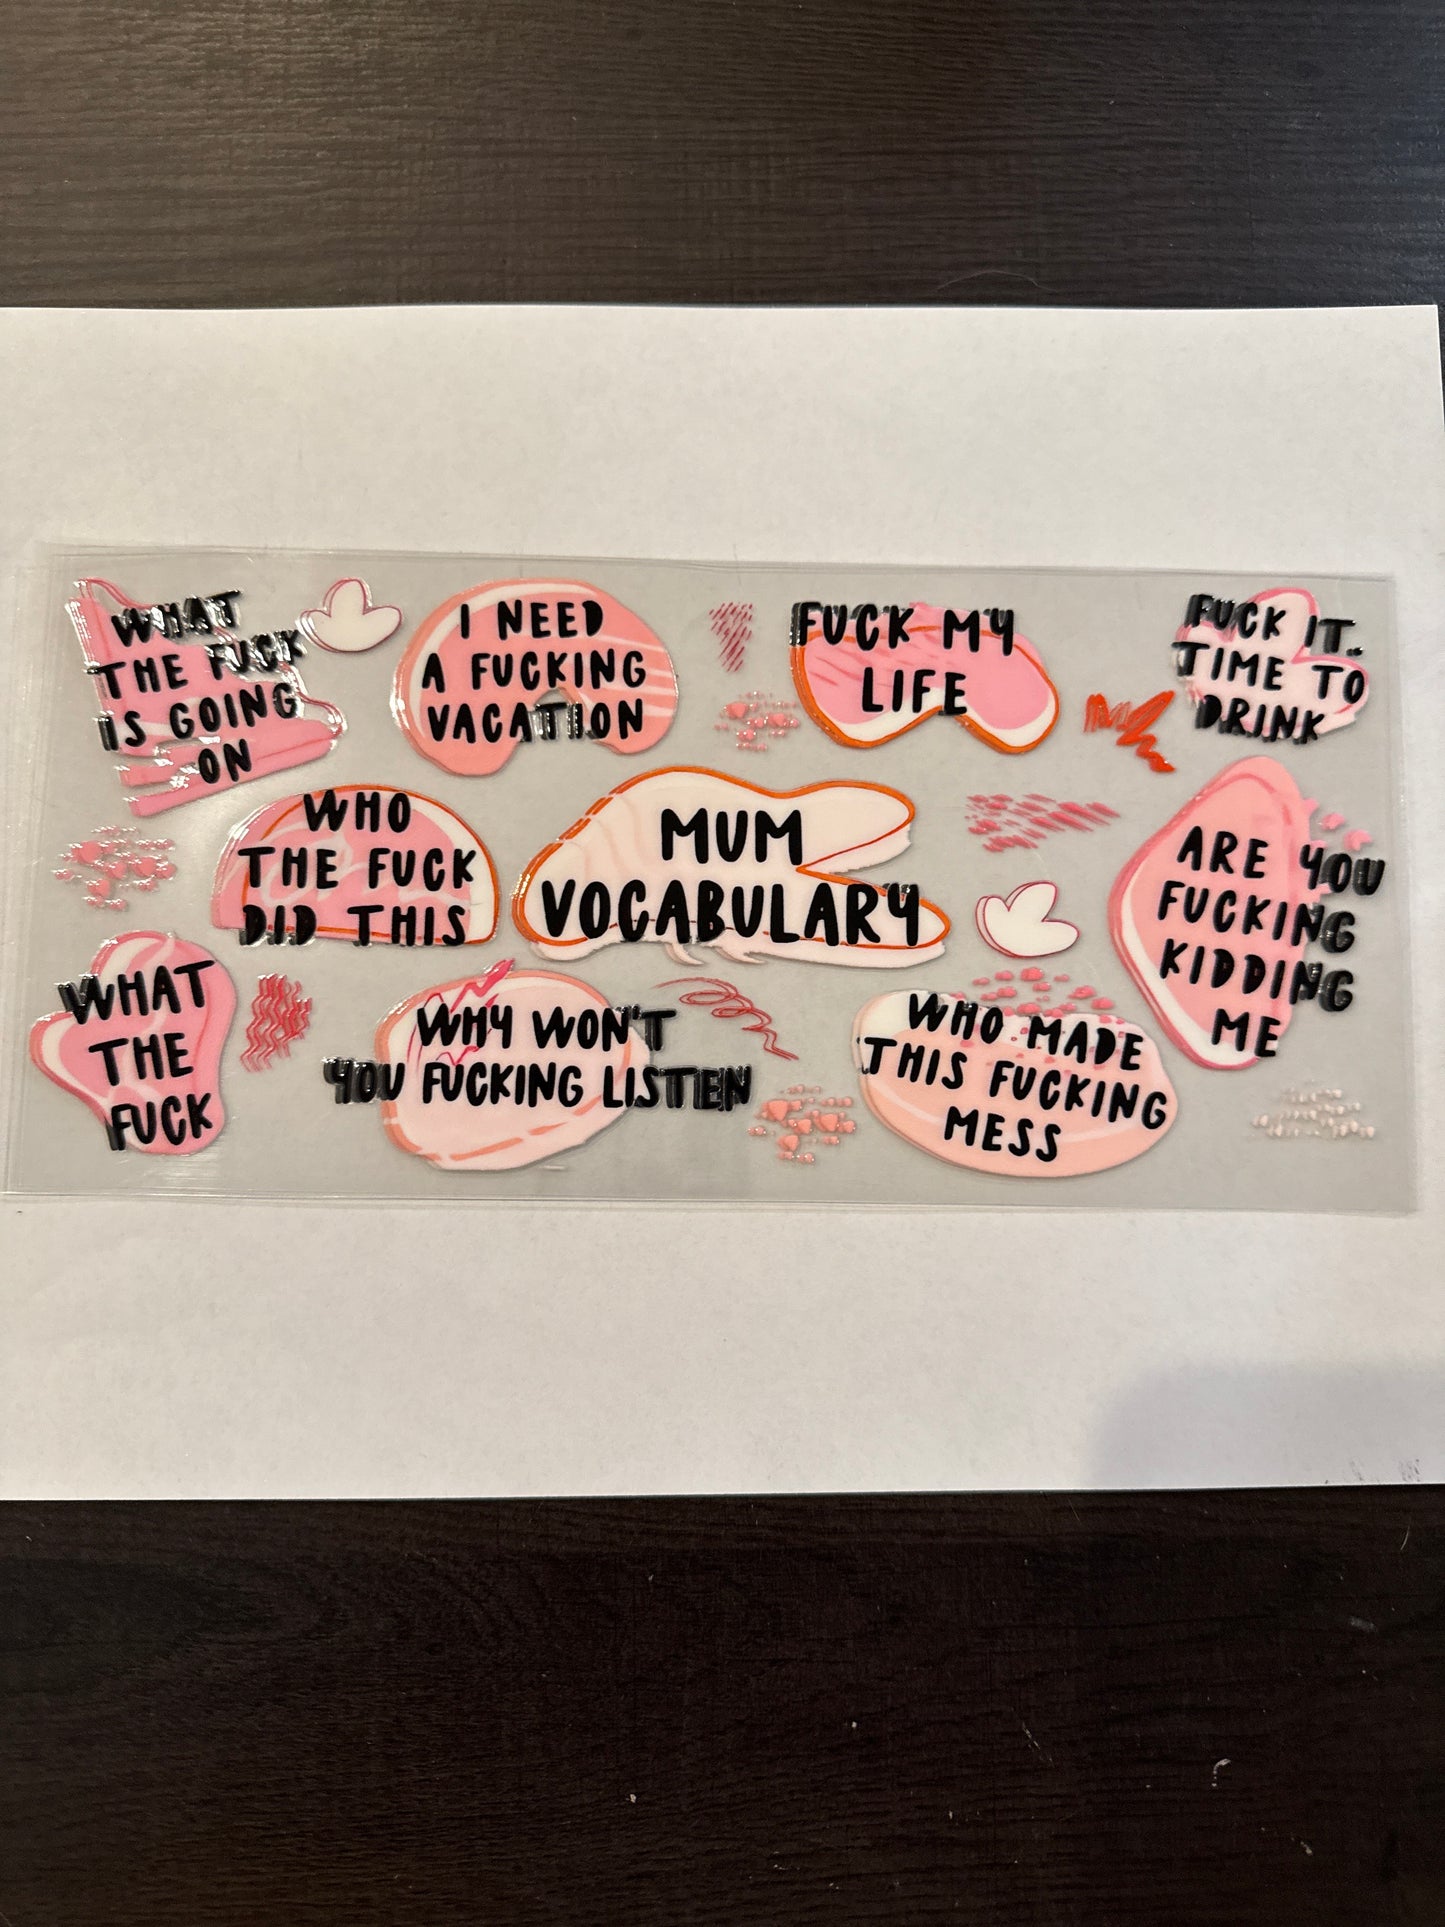 WHAT
THE FUCK
IS GOING
ON
I NEED
A FUCKING
VACATION
FUCK MY
LIFE
FUCK IT..
TIME TO
DRINK
WHO
THE FUCK
DID THIS
MUM
VOCABULARY
ARE YOU
FUCKING
KIDDING
ME
WHAT
THE
FUCK
WHY WON'T
YOU FUCKING LISTEN
WHO MADE
THIS FUCKING
MESS